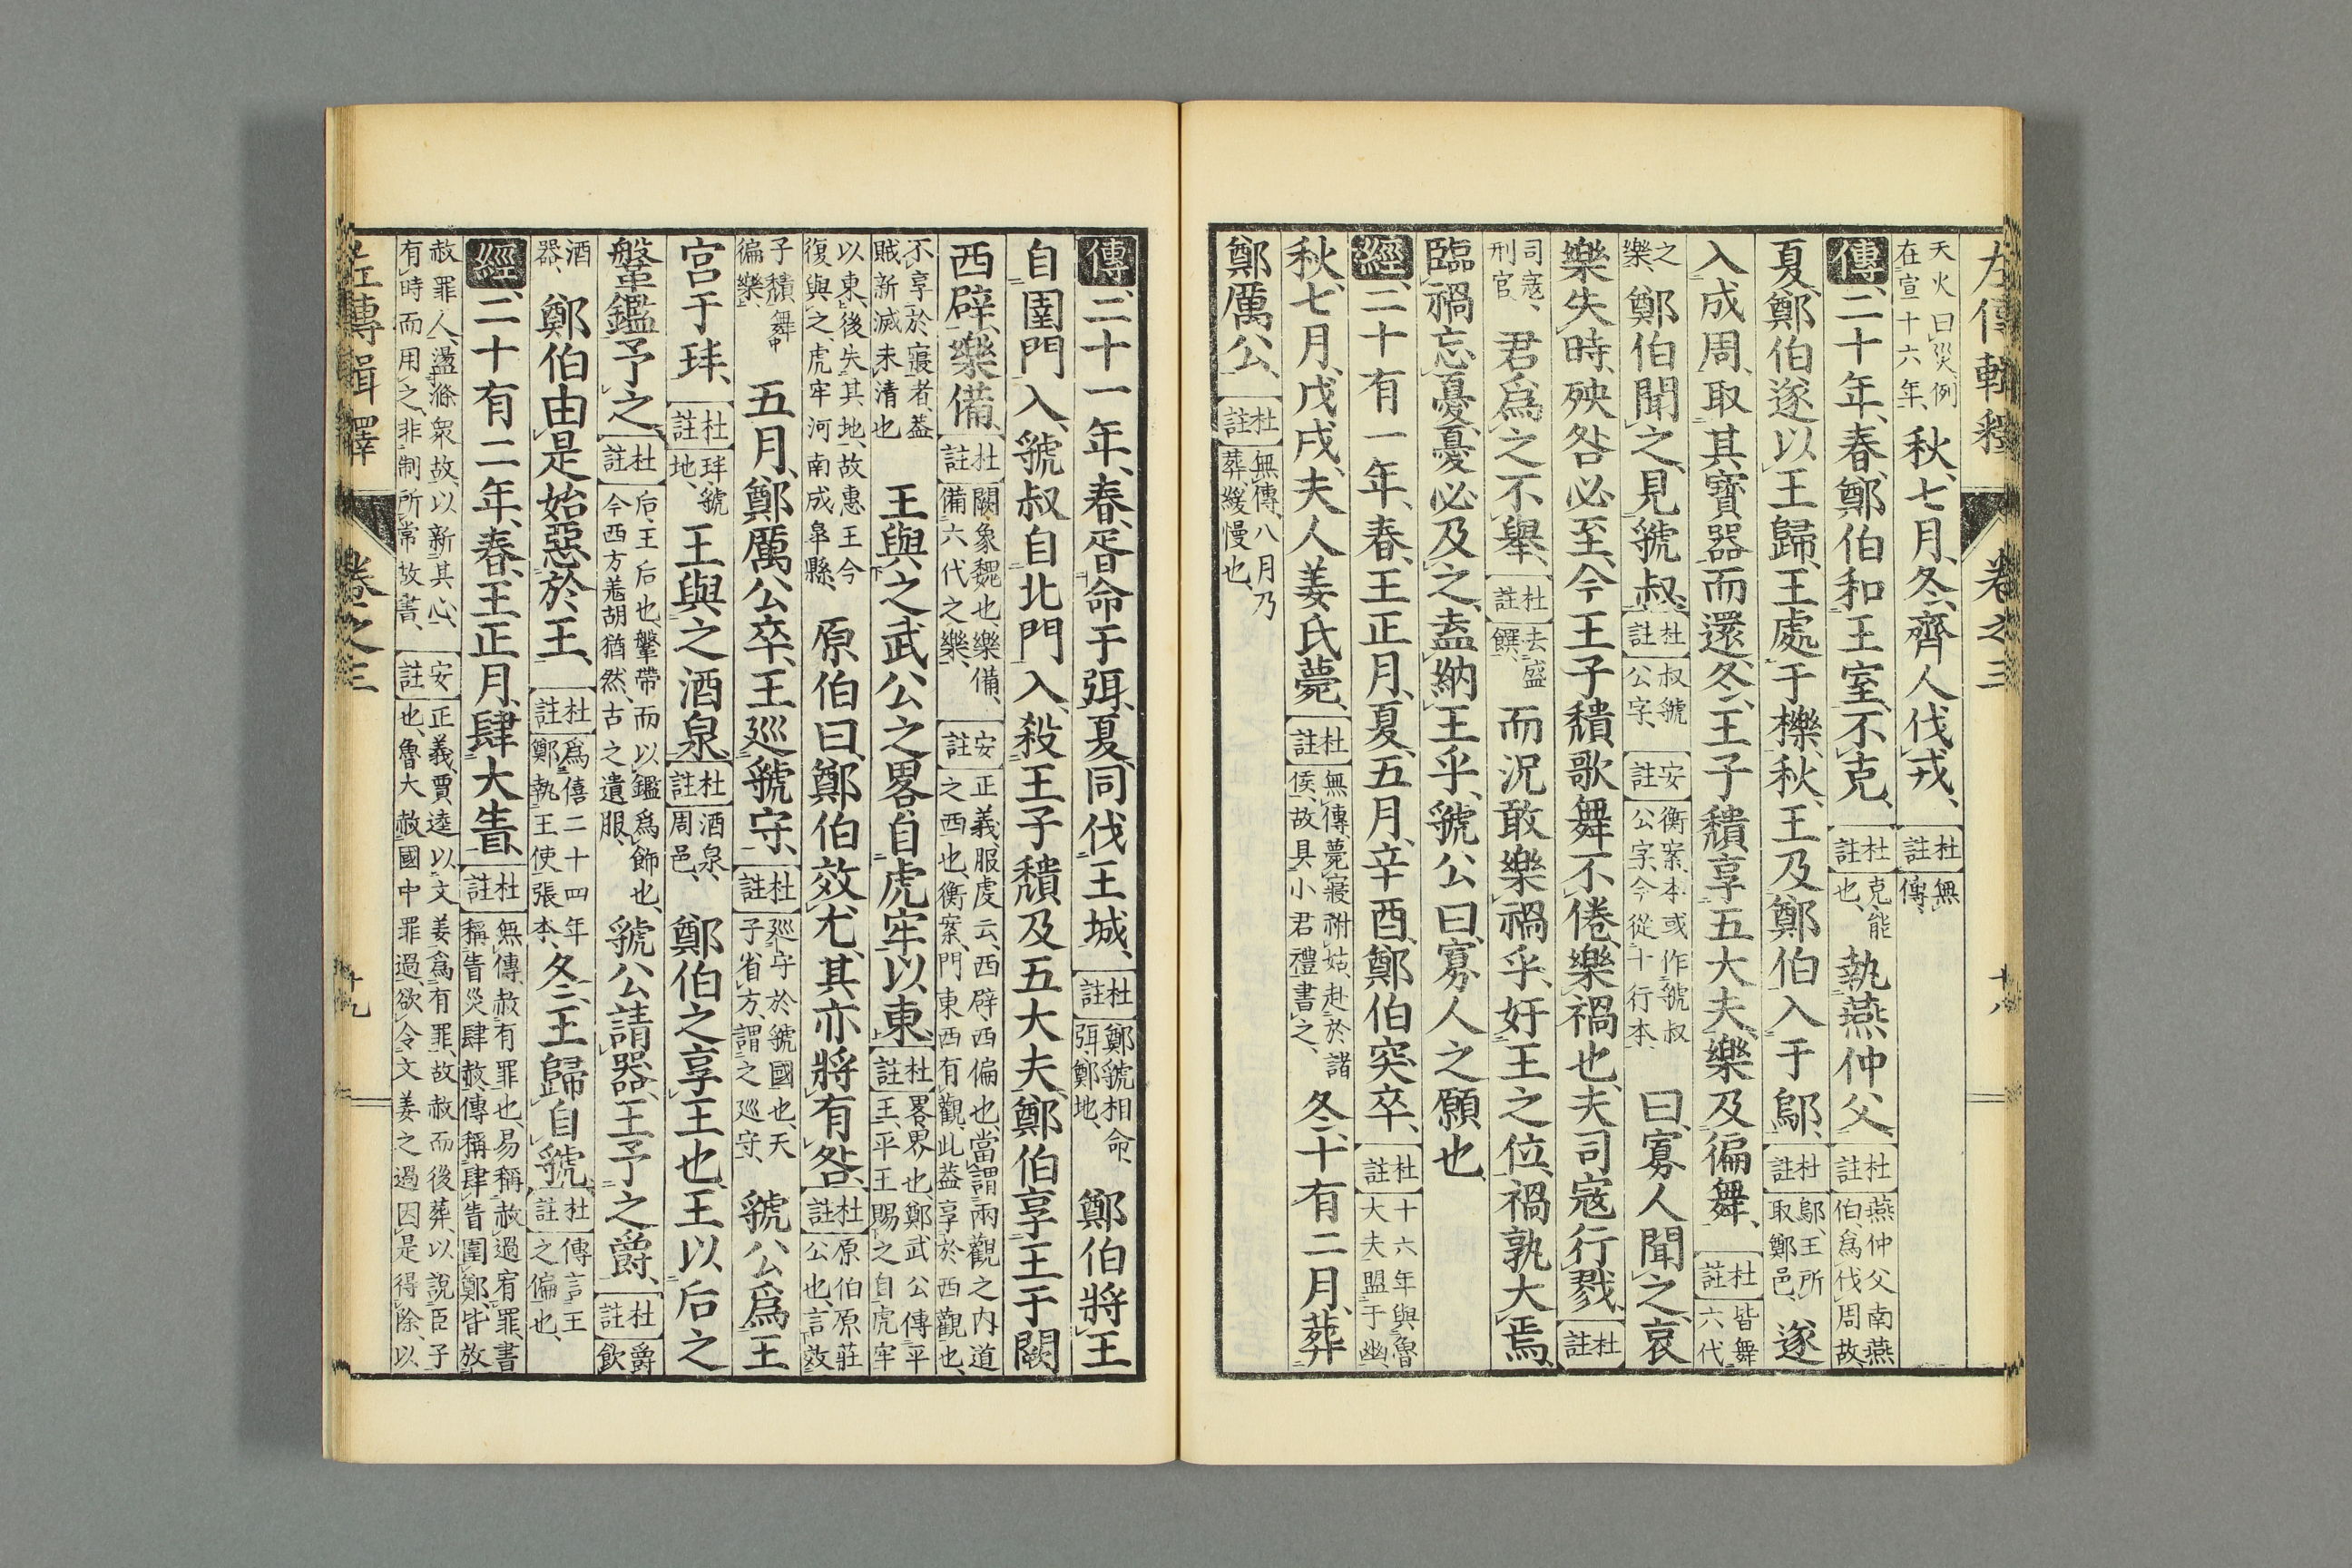 左傳輯釋 卷之三 十八
天火曰災例在宣十六年、秋、七月、冬、齊人伐戎、杜註無傳、
傳、二十年、春、鄭伯和王室、不克、杜註克、能也、執燕仲父、杜註燕仲父南燕伯、爲伐周故
夏、鄭伯遂以王歸、王處于櫟、秋、王及鄭伯入于鄔、杜註鄔、王所取鄭邑、遂
入成周、取其寶器而還、冬、王子穨享五大夫、樂及徧舞、杜註皆舞六代
之樂、鄭伯聞之、見虢叔、杜註叔虢公字、安註衡案、本或作虢叔公字、今從十行本、曰、寡人聞之、哀
樂失時、殃咎必至、今王子穨歌舞不倦、樂禍也、夫司寇行戮、杜註
司寇、刑官、君爲之不舉、杜註去盛饌、而況敢樂禍乎、奸王之位、禍孰大焉、
臨禍忘憂、憂必及之、盍納王乎、虢公曰、寡人之願也、
經、二十有一年、春、王正月、夏、五月、辛酉、鄭伯突卒、杜註十六年與魯大夫盟于幽
秋、七月、戊戌、夫人姜氏薨、杜註無傳、薨寢祔姑、赴於諸侯、故具小君禮書之、冬、十有二月、葬
鄭厲公、杜註無傳、八月乃葬、緩慢也、
傳、二十一年、春、胥命于弭、夏、同伐王城、杜註鄭虢相命、弭、鄭地、鄭伯將王
自圉門入、虢叔自北門入、殺王子穨及五大夫、鄭伯享王于闕
西辟、樂備、杜註闕、象魏也、樂備、備六代之樂、安註正義、服虔云、西辟、西偏也、當謂兩觀之内道之西也、衡案、門東西有觀、此蓋享於西觀也、
不享於寢者、蓋賊新滅未清也王與之武公之畧、自虎牢以東、杜註畧、界也、鄭武公傅平王、平王賜之自虎牢
以東、後失其地、故惠王今復與之、虎牢河南成皐縣、原伯曰、鄭伯效尤、其亦將有咎、杜註原伯原莊公也、言效
子穨舞徧樂、五月、鄭厲公卒、王巡虢守、杜註巡守於虢國也、天子省方、謂之巡守、虢公爲王
宮于玤、杜註玤、虢地、王與之酒泉、杜註酒泉、周邑、鄭伯之享王也、王以后之
鞶鑑予之、杜註后、王后也、鞶帶而以鑑爲飾也、今西方羗胡猶然、古之遺服、虢公請器、王予之爵、杜註爵飲
酒器、鄭伯由是始惡於王、杜註爲僖二十四年鄭執王使張本、冬、王歸自虢、杜註傳言王之偏也、
經、二十有二年、春、王正月、肆大眚、杜註無傳、赦有罪也、易稱赦過宥罪、書稱眚災肆赦、傳稱肆眚圍鄭、皆放
赦罪人、盪滌衆故、以新其心、有時而用之、非制所常故書、安註正義、賈逵以文姜爲有罪、故赦而後葬、以說臣子也、魯大赦國中罪過、欲令文姜之過因是得除、以
左傳輯釋 卷之三 十九